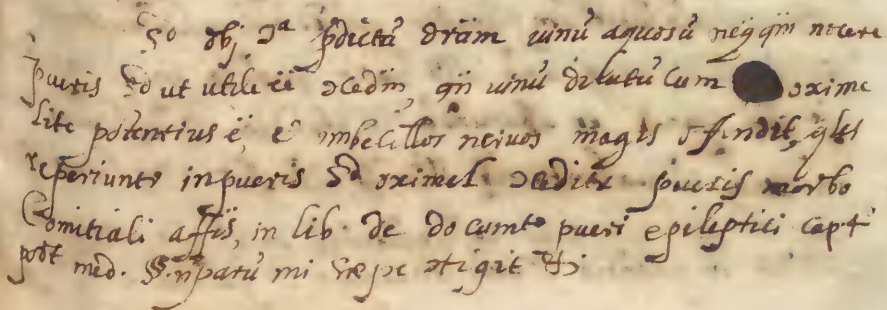 So obj 3a pdictã drãm uinũ aquosũ neq qm nocere
pueris sd ut utile eē ɔcedm, qn uinũ dilutũ cum oxime
lite potentius ē, e imbecillos neruos magis offendit, qles
reperiuntr in pueris sd oximel ɔceditr pueris morbo
Comitiali affis, in lib. de documto pueri epileptici cap 4
post med. S. n parũ mi sæpe ɔtigit